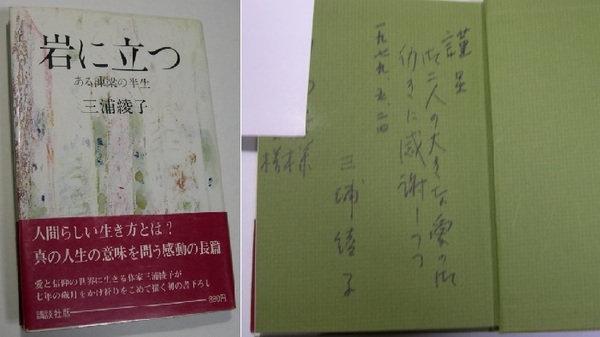 岩に立つ
ある棟梁の半生
三浦綾子
人間らしい生き方とは?
真の人生の意味を問う感動の長篇
愛と信仰の世界に生きる作家三浦綾子が
七年の歳月をかけ祈りをこめて描く初の書下ろし
講談社版
謹呈
御二人の大きな愛の御
働きに感謝しつつ
一九七九、五、二四
三浦綾子
様
様